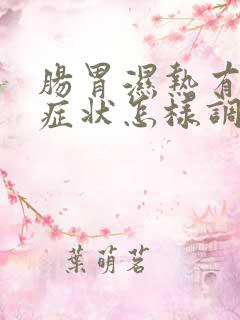 腸胃濕熱有
症狀怎樣調
葉萌茗